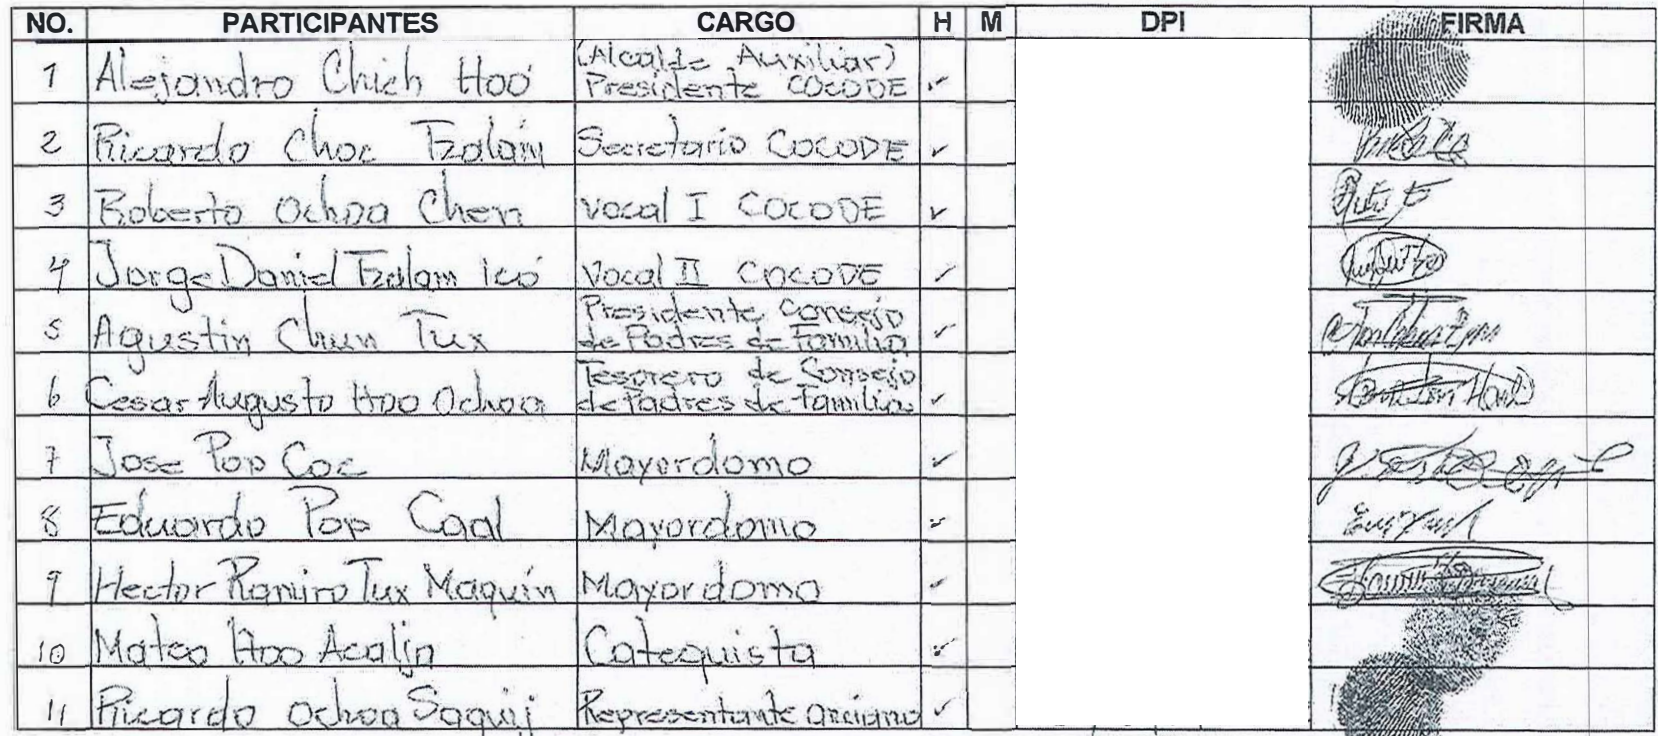 NO. PARTICIPANTES CARGO H M DPI FIRMA
1 Alejandro Chich Hoó (Alcalde Auxiliar) Presidente COCODE ✓
2 Ricardo Choc Tzalám Secretario COCODE ✓
3 Roberto Ochoa Chen Vocal I COCODE ✓
4 Jorge Daniel Tzalam Icó Vocal II COCODE ✓
5 Agustin Chun Tux Presidente Consejo de Padres de Familia ✓
6 Cesar Augusto Hoo Ochoa Tesorero de Consejo de Padres de Familia ✓
7 Jose Pop Coc Mayordomo ✓
8 Eduardo Pop Caal Mayordomo ✓
9 Hector Ramiro Tux Maquín Mayordomo ✓
10 Mateo Hoo Acalja Catequista ✓
11 Ricardo Ochoa Saquij Representante anciano ✓